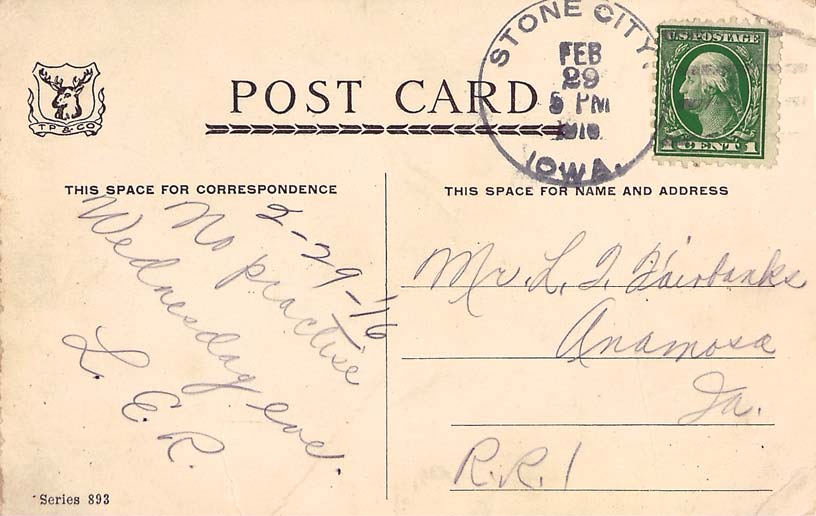 STONE CITY,
FEB
29
5 PM
1916
IOWA.
U.S. POSTAGE
1 CENT 1
T P & CO
POST CARD
THIS SPACE FOR CORRESPONDENCE
2-29-16
No practise
Wednesday eve.
L. E. R.
THIS SPACE FOR NAME AND ADDRESS
Mr. L. T. Fairbanks
Anamosa
Ia.
R.R. 1
Series 893